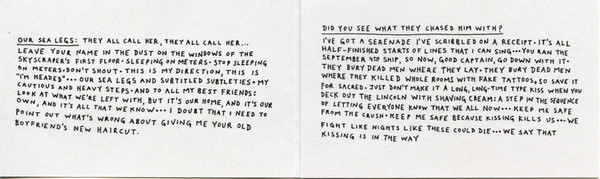 OUR SEA LEGS: THEY ALL CALL HER, THEY ALL CALL HER...
LEAVE YOUR NAME IN THE DUST ON THE WINDOWS OF THE
SKYSCRAPER'S FIRST FLOOR • SLEEPING ON METERS • STOP SLEEPING
ON METERS • DON'T SHOUT • THIS IS MY DIRECTION, THIS IS
"I'M HEADED"... OUR SEA LEGS AND SUBTITLED SUBTLETIES • MY
CAUTIOUS AND HEAVY STEPS • AND TO ALL MY BEST FRIENDS:
LOOK AT WHAT WE'RE LEFT WITH, BUT IT'S OUR HOME, AND IT'S OUR
OWN, AND IT'S ALL THAT WE KNOW... I DOUBT THAT I NEED TO
POINT OUT WHAT'S WRONG ABOUT GIVING ME YOUR OLD
BOYFRIEND'S NEW HAIRCUT.
DID YOU SEE WHAT THEY CHASED HIM WITH?
I'VE GOT A SERENADE I'VE SCRIBBLED ON A RECEIPT • IT'S ALL
HALF-FINISHED STARTS OF LINES THAT I CAN SING... YOU RAN THE
SEPTEMBER 4TH SHIP, SO NOW, GOOD CAPTAIN, GO DOWN WITH IT •
THEY BURY DEAD MEN WHERE THEY LAY • THEY BURY DEAD MEN
WHERE THEY KILLED WHOLE ROOMS WITH FAKE TATTOOS • SO SAVE IT
FOR SACRED • JUST DON'T MAKE IT A LONG, LONG-TIME TYPE KISS WHEN YOU
DECK OUT THE LINCOLN WITH SHAVING CREAM: A STEP IN THE SEQUENCE
OF LETTING EVERYONE KNOW THAT WE ALL NOW... KEEP ME SAFE
FROM THE CRUSH • KEEP ME SAFE BECAUSE KISSING KILLS US... WE
FIGHT LIKE NIGHTS LIKE THESE COULD DIE... WE SAY THAT
KISSING IS IN THE WAY